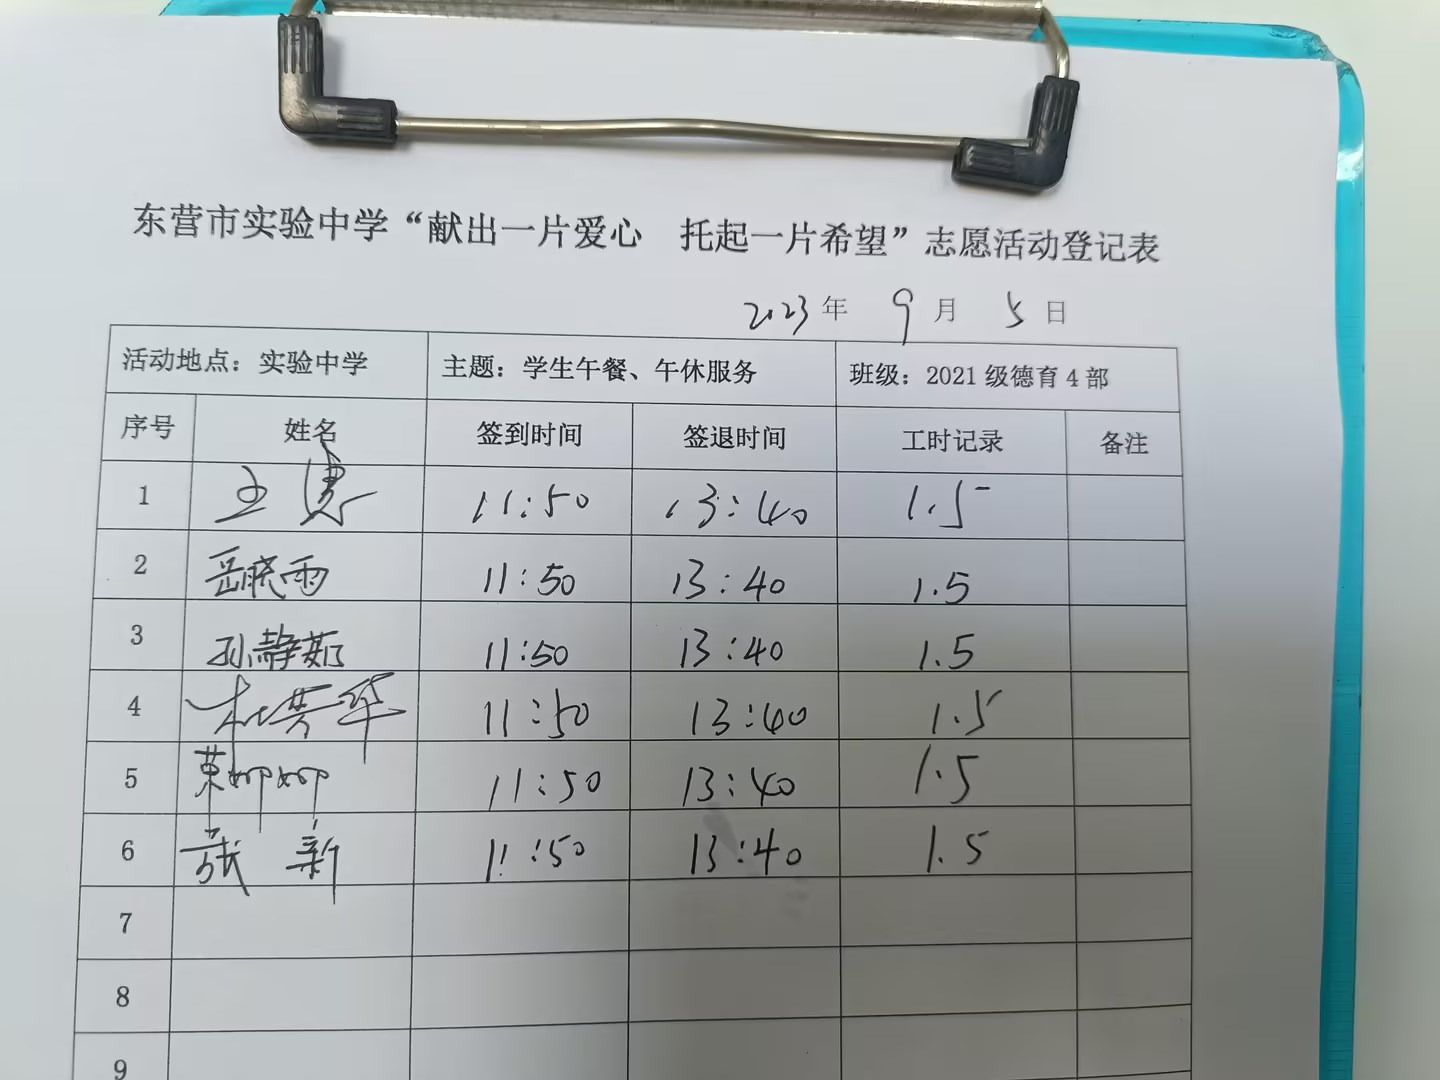 东营市实验中学“献出一片爱心 托起一片希望”志愿活动登记表
2023年 9月 5日
活动地点：实验中学 主题：学生午餐、午休服务 班级：2021级德育4部
序号 姓名 签到时间 签退时间 工时记录 备注
1 王 11:50 13:40 1.5
2 岳晓雨 11:50 13:40 1.5
3 孙静茹 11:50 13:40 1.5
4 杜芳华 11:50 13:40 1.5
5 11:50 13:40 1.5
6 新 11:50 13:40 1.5
7
8
9